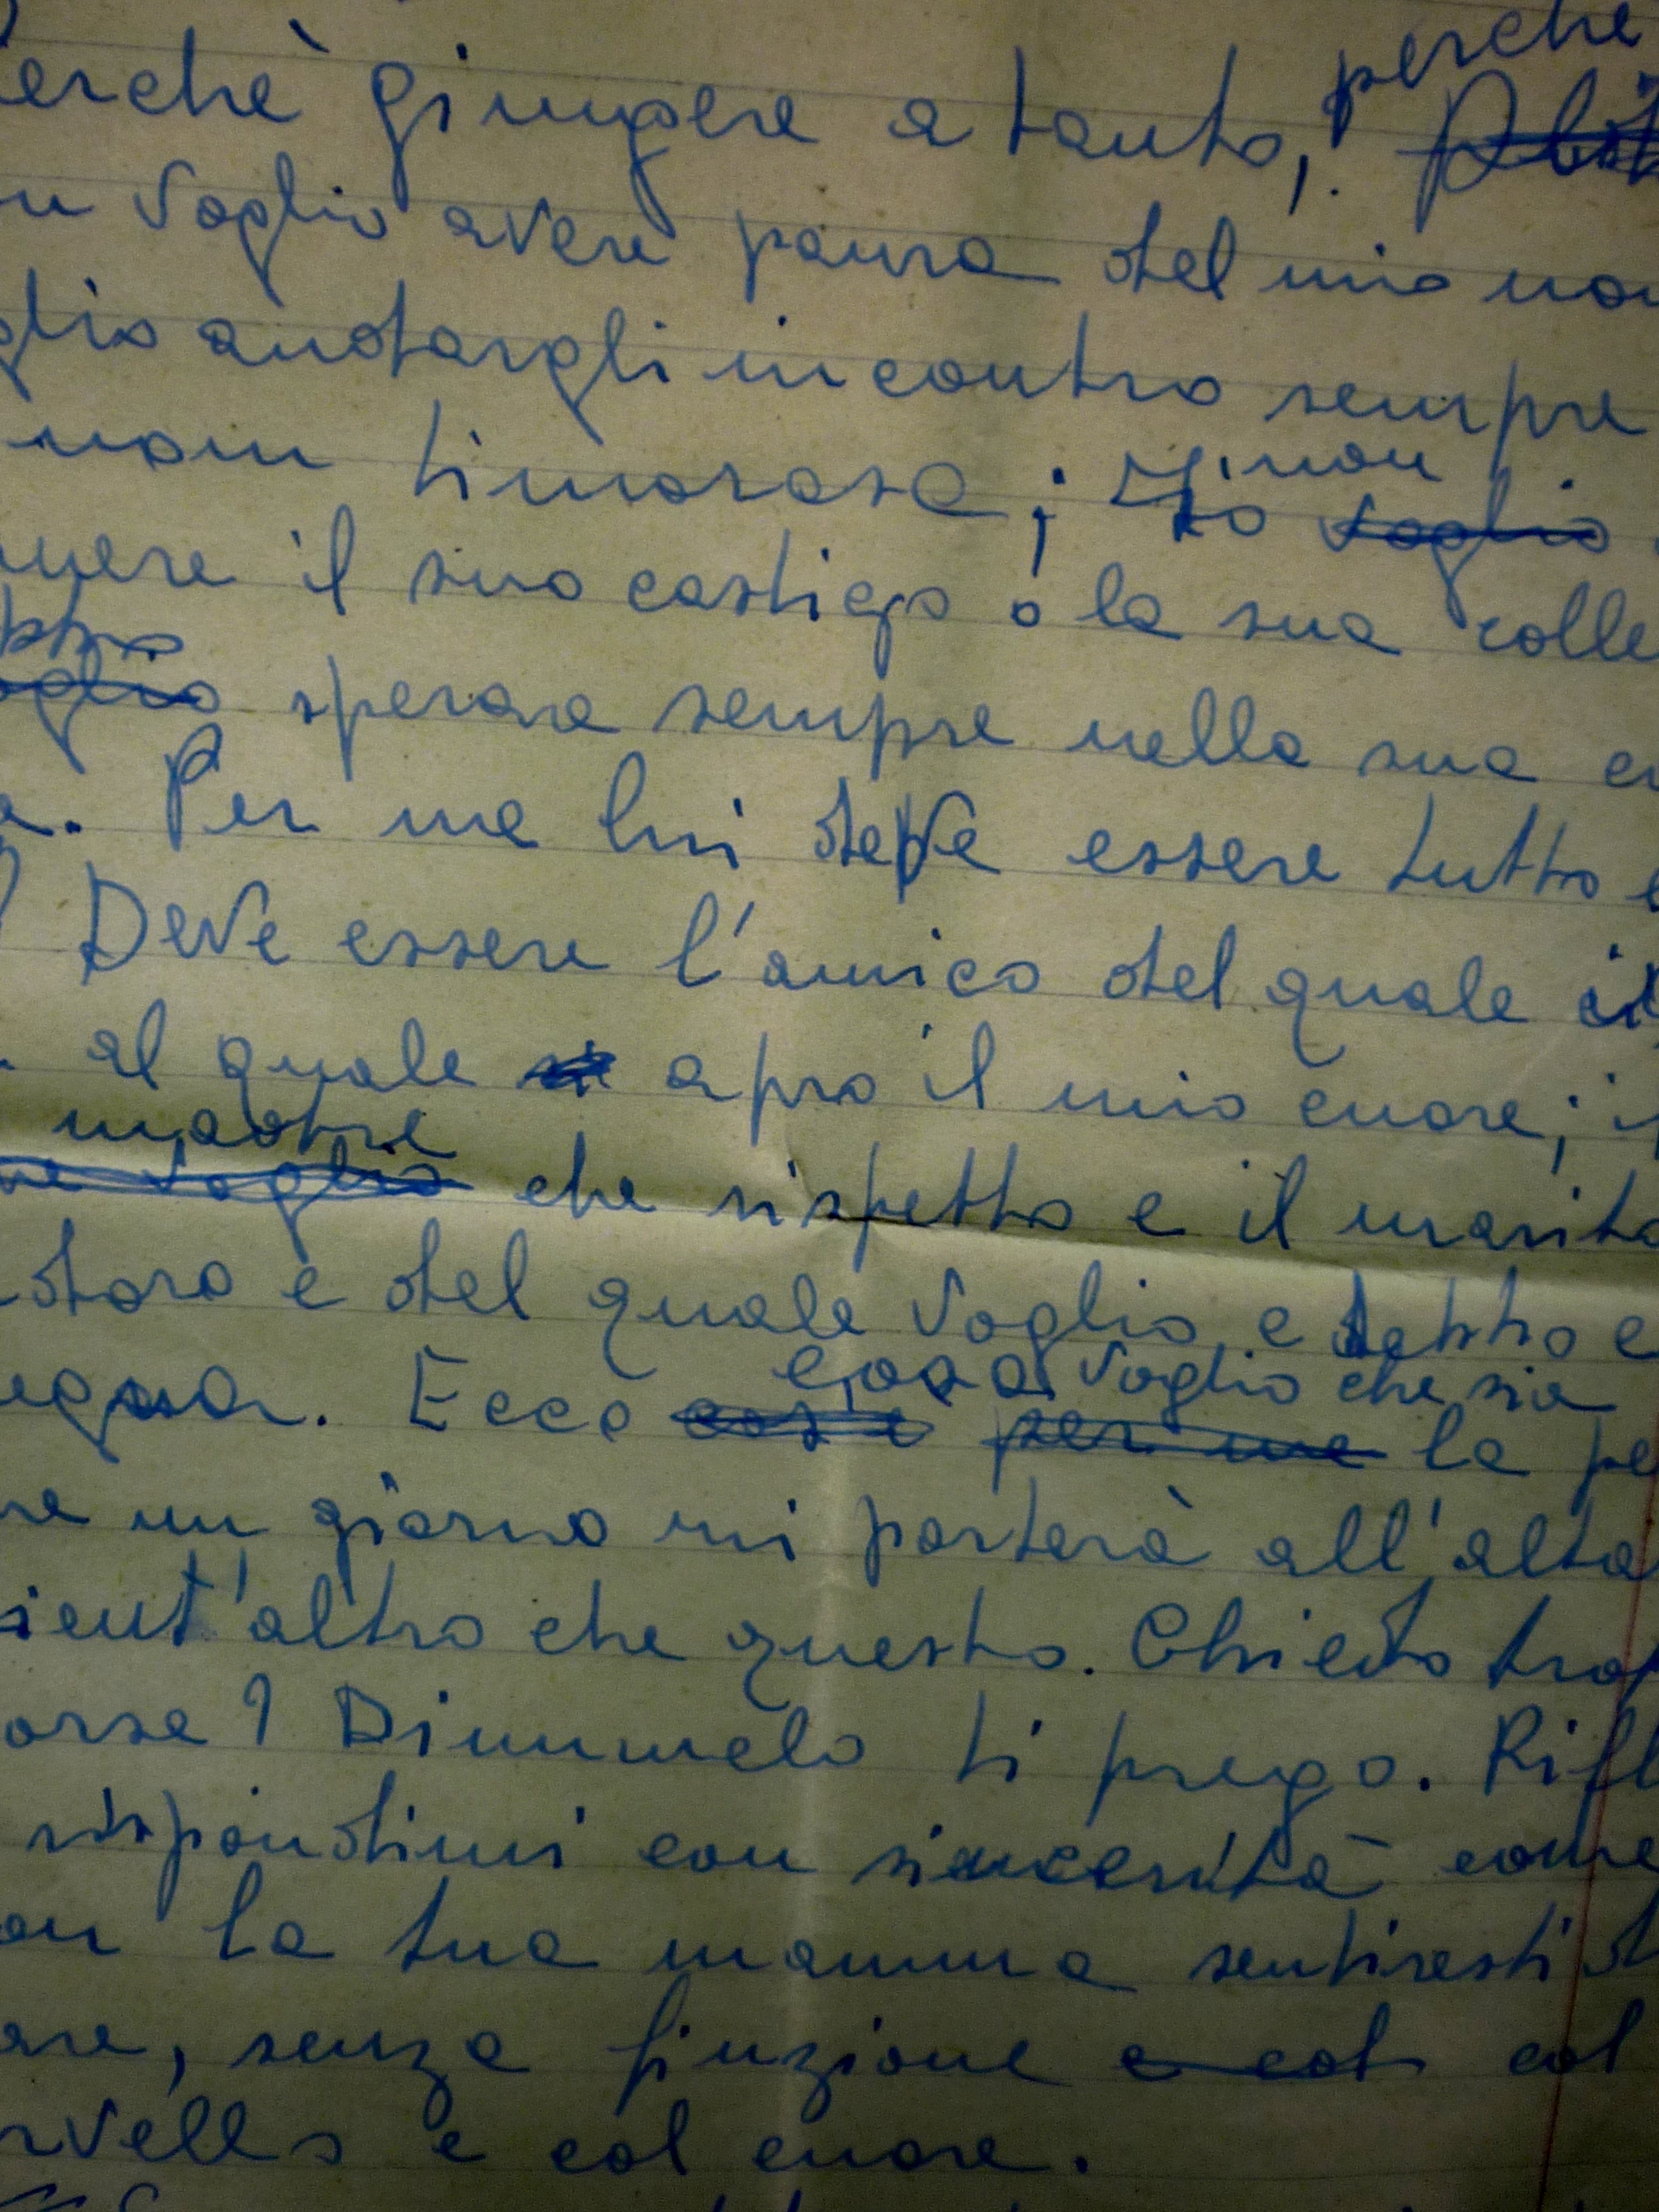 perchè
erchè giungere a tanto,
n voglio avere paura del mio
glio andargli incontro sempre
non timorosa; Io non voglio
mere il suo castigo o la sua colle
bbo
oglio sperare sempre nella sua
a. Per me lui deve essere tutto e
Deve essere l'amico del quale
al quale apro il mio cuore; i
madre
ne voglio che rispetto e il marito
doro e del quale voglio e debbo e
egna. Ecco cosa voglio che sia
cosi per me la pe
he un giorno mi porterà all'alta
ient'altro che questo. Chiedo trop
orse? Dimmelo ti prego. Rifl
rispondimi con sincerità come
on la tua mamma sentiresti d
are, senza finzione e col col
rvello e col cuore.